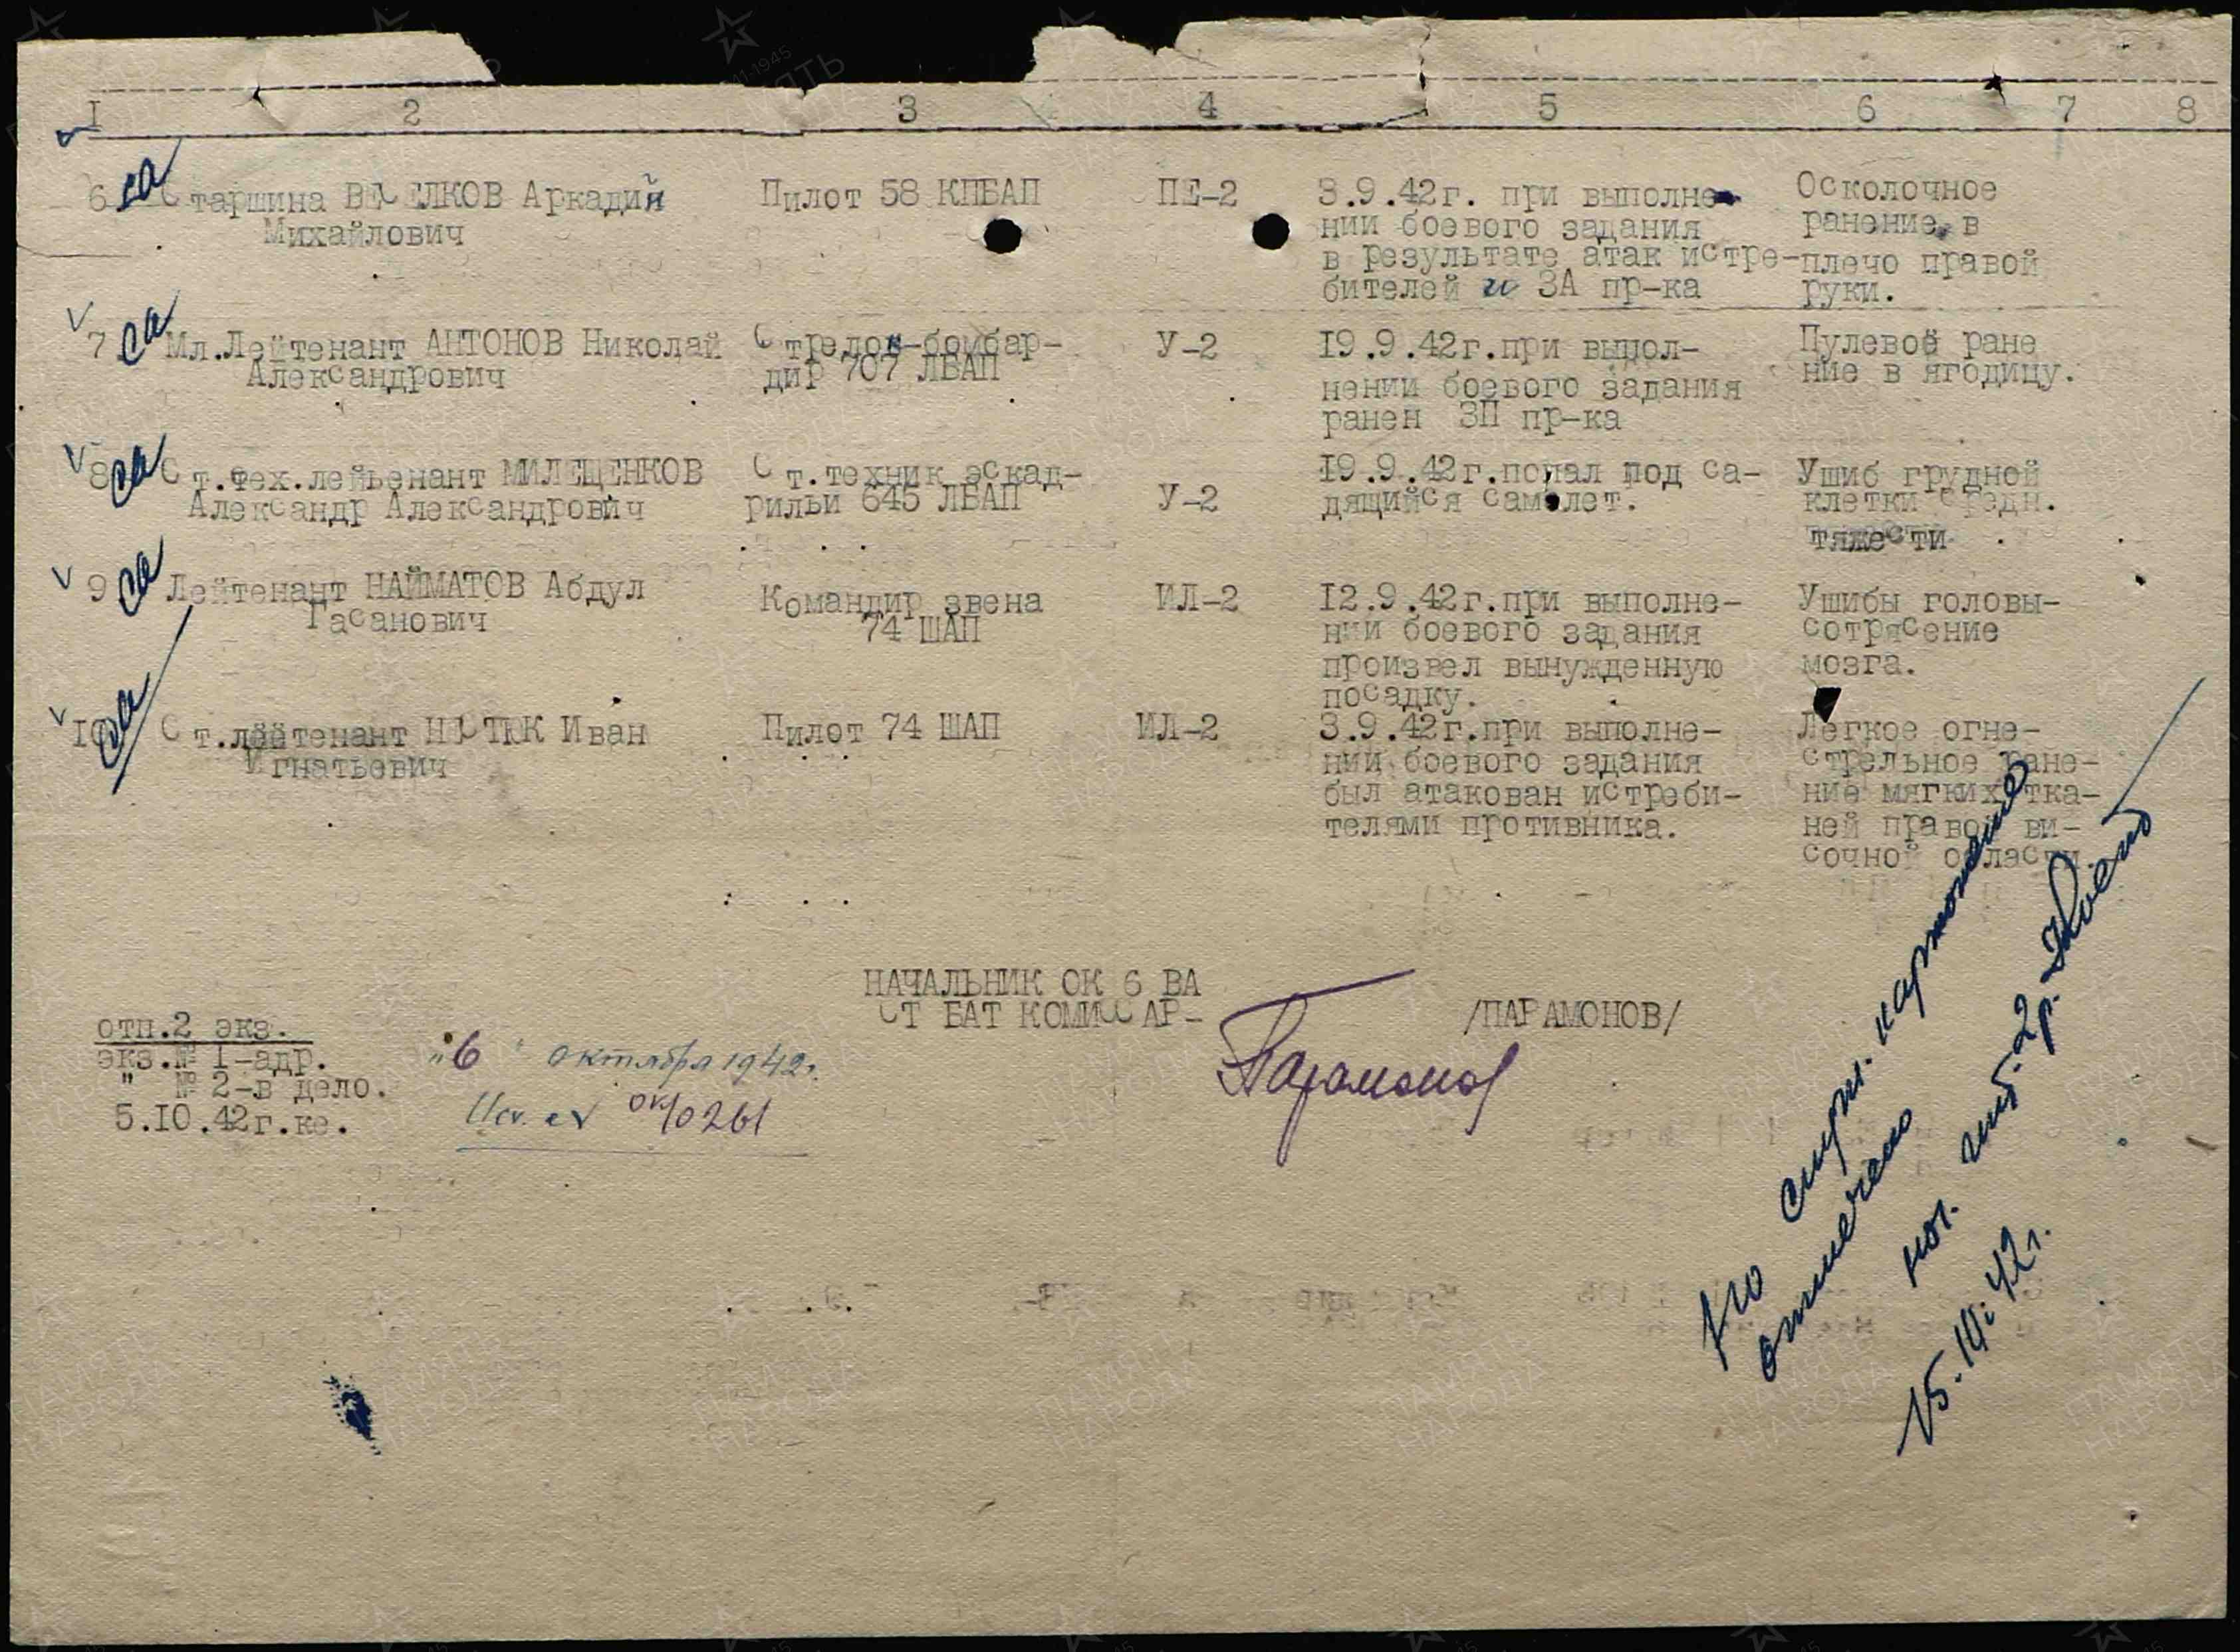 1 2 3 4 5 6 7 8
6 са Старшина ВЕСЕЛКОВ Аркадий Пилот 58 КПБАП ПЕ-2 3.9.42г. при выполне- Осколочное
Михайлович нии боевого задания ранение в
в результате атак истре- плечо правой
бителей и ЗА пр-ка руки.
7 са Мл.Лейтенант АНТОНОВ Николай Стрелок-бомбар- У-2 19.9.42г.при выпол- Пулевое ране
Александрович дир 707 ЛБАП нении боевого задания ние в ягодицу.
ранен ЗП пр-ка
8 са Ст.тех.лейьенант МИЛЕЩЕНКОВ Ст.техник эскад- У-2 19.9.42г.попал под са- Ушиб грудной
Александр Александрович рильи 645 ЛБАП дящийся самолет. клетки средн.
тяжести
9 са Лейтенант НАЙМАТОВ Абдул Командир звена ИЛ-2 12.9.42г.при выполне- Ушибы головы-
Гасанович 74 ШАП нии боевого задания сотрясение
произвел вынужденную мозга.
посадку.
10 са Ст.лейтенант Иван Пилот 74 ШАП ИЛ-2 3.9.42г.при выполне- Легкое огне-
Игнатьевич нии боевого задания стрельное ране-
был атакован истреби- ние мягких тка-
телями противника. ней правой ви-
сочной области.
НАЧАЛЬНИК ОК 6 ВА
СТ БАТ КОМИССАР- /ПАРАМОНОВ/
Парамонов
отп.2 экз.
экз.№ 1-адр.
" № 2-в дело.
5.10.42г.ке.
"6" октября 1942г.
Исх. ок/0261
По картотеке
отмечено
15.10.42г.